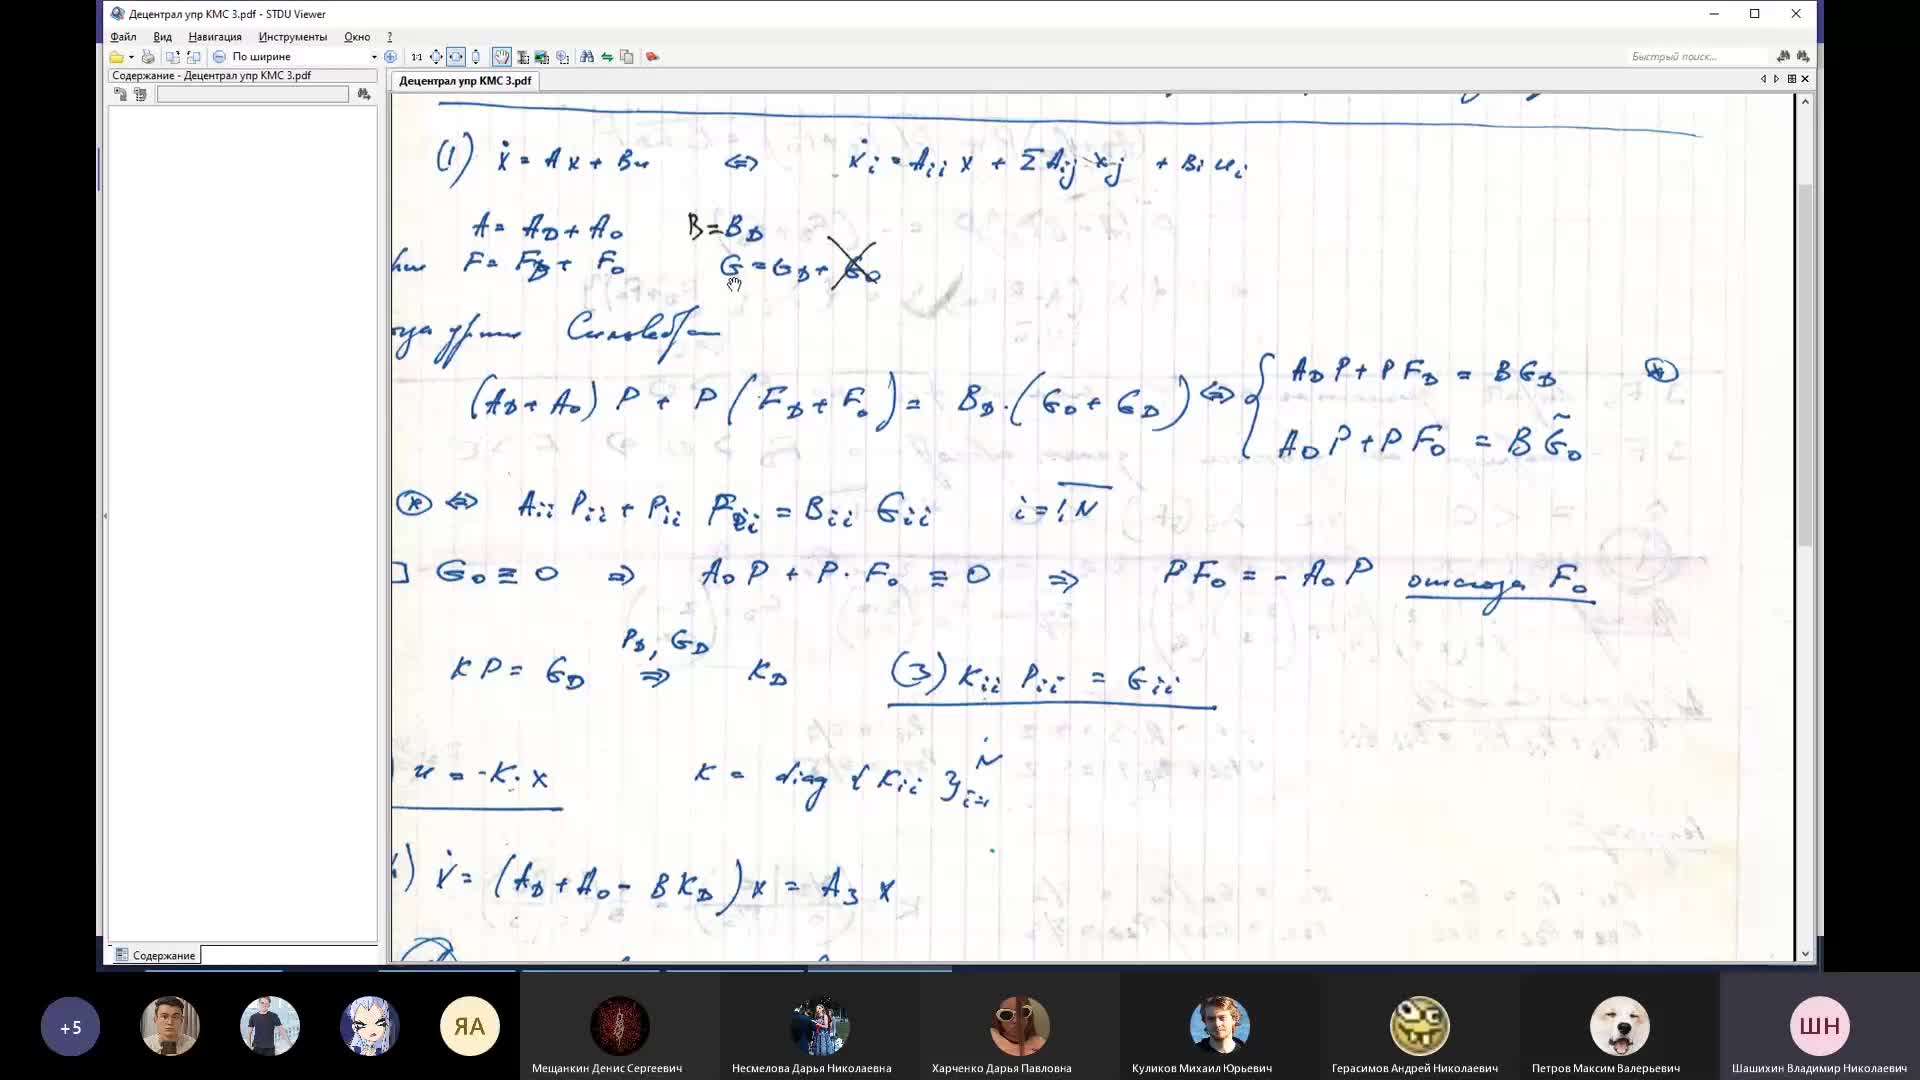 Децентрал упр КМС 3.pdf - STDU Viewer
Файл Вид Навигация Инструменты Окно ?
По ширине
1:1
Быстрый поиск...
Содержание - Децентрал упр КМС 3.pdf
Децентрал упр КМС 3.pdf
(1) ẋ = Ax + Bu ⇔ ẋi = Aii x + Σ Aij xj + Bi ui
A = AD + A0 B = BD
F = FD + F0 G = GD + G0
Сильвестра
(AD + A0) P + P (FD + F0) = BD · (G0 + GD) ⇔ { AD P + P FD = B GD (*)
A0 P + P F0 = B G̃0
(*) ⇔ Aii Pii + Pii Fii = Bii Gii i = 1,N
G0 ≡ 0 ⇒ A0 P + P · F0 ≡ 0 ⇒ P F0 = - A0 P отсюда F0
PD, GD
K P = GD ⇒ KD (3) Kii Pii = Gii
u = -K · x K = diag { Kii }i=1 N
) ẋ = (AD + A0 - B KD) x = A3 x
Содержание
+5
ЯА
ШН
Мещанкин Денис Сергеевич
Несмелова Дарья Николаевна
Харченко Дарья Павловна
Куликов Михаил Юрьевич
Герасимов Андрей Николаевич
Петров Максим Валерьевич
Шашихин Владимир Николаевич